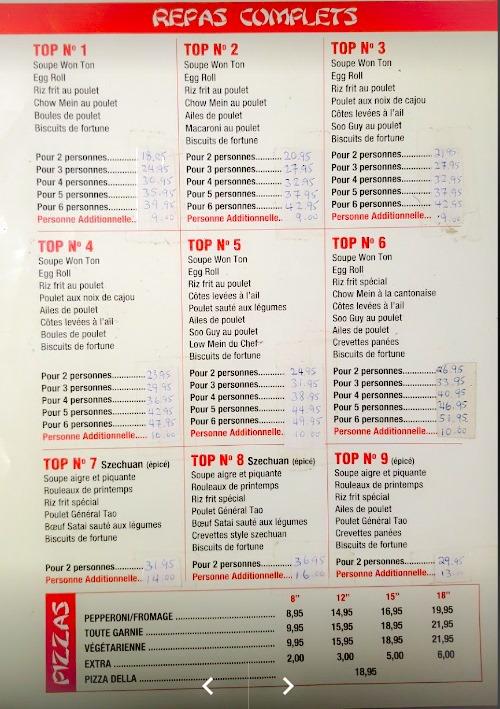 REPAS COMPLETS
TOP Nº 1
Soupe Won Ton
Egg Roll
Riz frit au poulet
Chow Mein au poulet
Boules de poulet
Biscuits de fortune
Pour 2 personnes.......... 18.95
Pour 3 personnes.......... 24.95
Pour 4 personnes.......... 30.95
Pour 5 personnes.......... 35.95
Pour 6 personnes.......... 39.95
Personne Additionnelle.. 9.00
TOP Nº 2
Soupe Won Ton
Egg Roll
Riz frit au poulet
Chow Mein au poulet
Ailes de poulet
Macaroni au poulet
Biscuits de fortune
Pour 2 personnes.......... 20.95
Pour 3 personnes.......... 27.95
Pour 4 personnes.......... 32.95
Pour 5 personnes.......... 37.95
Pour 6 personnes.......... 42.95
Personne Additionnelle.. 9.00
TOP Nº 3
Soupe Won Ton
Egg Roll
Riz frit au poulet
Poulet aux noix de cajou
Côtes levées à l'ail
Soo Guy au poulet
Biscuits de fortune
Pour 2 personnes.......... 21.95
Pour 3 personnes.......... 27.95
Pour 4 personnes.......... 32.95
Pour 5 personnes.......... 37.95
Pour 6 personnes.......... 42.95
Personne Additionnelle.. 9.00
TOP Nº 4
Soupe Won Ton
Egg Roll
Riz frit au poulet
Poulet aux noix de cajou
Ailes de poulet
Côtes levées à l'ail
Boules de poulet
Biscuits de fortune
Pour 2 personnes.......... 23.95
Pour 3 personnes.......... 29.95
Pour 4 personnes.......... 36.95
Pour 5 personnes.......... 42.95
Pour 6 personnes.......... 47.95
Personne Additionnelle.... 10.00
TOP Nº 5
Soupe Won Ton
Egg Roll
Riz frit au poulet
Côtes levées à l'ail
Poulet sauté aux légumes
Ailes de poulet
Soo Guy au poulet
Low Mein du Chef
Biscuits de fortune
Pour 2 personnes.......... 24.95
Pour 3 personnes.......... 31.95
Pour 4 personnes.......... 38.95
Pour 5 personnes.......... 44.95
Pour 6 personnes.......... 49.95
Personne Additionnelle.... 10.00
TOP Nº 6
Soupe Won Ton
Egg Roll
Riz frit spécial
Chow Mein à la cantonaise
Côtes levées à l'ail
Soo Guy au poulet
Ailes de poulet
Crevettes panées
Biscuits de fortune
Pour 2 personnes.......... 26.95
Pour 3 personnes.......... 33.95
Pour 4 personnes.......... 40.95
Pour 5 personnes.......... 46.95
Pour 6 personnes.......... 51.95
Personne Additionnelle.... 10.00
TOP Nº 7 Szechuan (épicé)
Soupe aigre et piquante
Rouleaux de printemps
Riz frit spécial
Poulet Général Tao
Bœuf Satai sauté aux légumes
Biscuits de fortune
Pour 2 personnes.......... 31.95
Personne Additionnelle.... 14.00
TOP Nº 8 Szechuan (épicé)
Soupe aigre et piquante
Rouleaux de printemps
Riz frit spécial
Poulet Général Tao
Bœuf Satai sauté aux légumes
Crevettes style szechuan
Biscuits de fortune
Pour 2 personnes.......... 36.95
Personne Additionnelle.... 16.00
TOP Nº 9 (épicé)
Soupe aigre et piquante
Rouleaux de printemps
Riz frit spécial
Ailes de poulet
Poulet Général Tao
Crevettes panées
Biscuits de fortune
Pour 2 personnes.......... 29.95
Personne Additionnelle.... 13
PIZZAS
8" 12" 15" 18"
PEPPERONI/FROMAGE 8,95 14,95 16,95 19,95
TOUTE GARNIE 9,95 15,95 18,95 21,95
VÉGÉTARIENNE 9,95 15,95 18,95 21,95
EXTRA 2,00 3,00 5,00 6,00
PIZZA DELLA 18,95